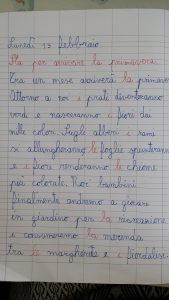 Lunedì 13 febbraio
Sta per arrivare la primavera.
Tra un mese arriverà la primavera
Attorno a noi i prati diventeranno
verdi e nasceranno i fiori dai
mille colori. Sugli alberi i rami
si allungheranno le foglie spunteranno
e i fiori renderanno le chiome
più colorate. Noi bambini
finalmente andremo a giocare
in giardino per la ricreazione
e consumeremo la merenda
tra le margherite e i fiordalisi.